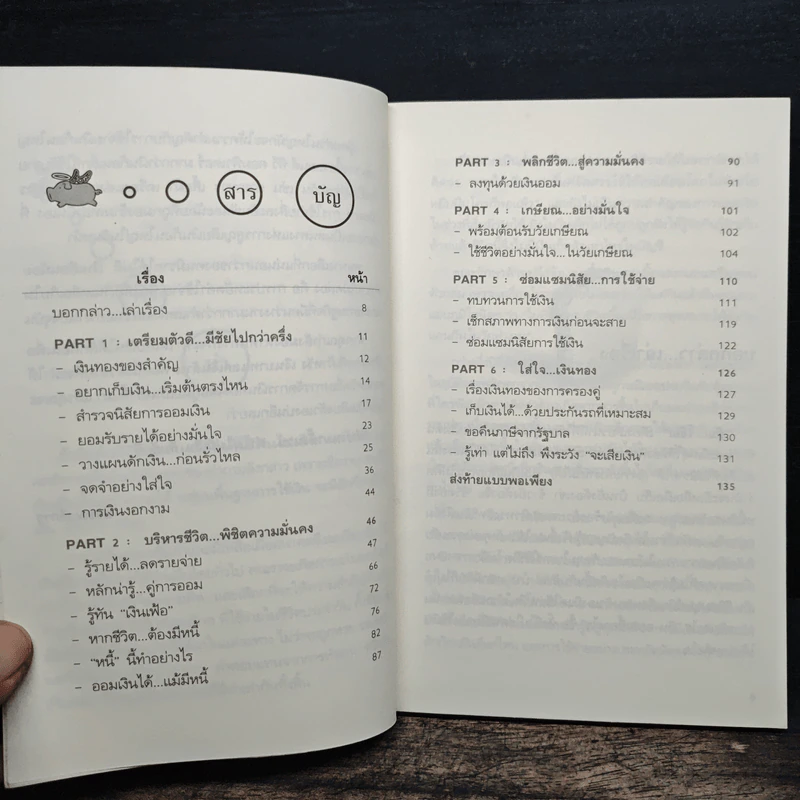 สารบัญ
เรื่อง หน้า
บอกกล่าว...เล่าเรื่อง 8
PART 1 : เตรียมตัวดี...มีชัยไปกว่าครึ่ง 11
- เงินทองของสำคัญ 12
- อยากเก็บเงิน...เริ่มต้นตรงไหน 14
- สำรวจนิสัยการออมเงิน 17
- ยอมรับรายได้อย่างมั่นใจ 23
- วางแผนดักเงิน...ก่อนรั่วไหล 25
- จดจำอย่างใส่ใจ 36
- การเงินงอกงาม 44
PART 2 : บริหารชีวิต...พิชิตความมั่นคง 46
- รู้รายได้...ลดรายจ่าย 47
- หลักน่ารู้...คู่การออม 66
- รู้ทัน "เงินเฟ้อ" 72
- หากชีวิต...ต้องมีหนี้ 76
- "หนี้" นี้ทำอย่างไร 82
- ออมเงินได้...แม้มีหนี้ 87
PART 3 : พลิกชีวิต...สู่ความมั่นคง 90
- ลงทุนด้วยเงินออม 91
PART 4 : เกษียณ...อย่างมั่นใจ 101
- พร้อมต้อนรับวัยเกษียณ 102
- ใช้ชีวิตอย่างมั่นใจ...ในวัยเกษียณ 104
PART 5 : ซ่อมแซมนิสัย...การใช้จ่าย 110
- ทบทวนการใช้เงิน 111
- เช็กสภาพทางการเงินก่อนจะสาย 119
- ซ่อมแซมนิสัยการใช้เงิน 122
PART 6 : ใส่ใจ...เงินทอง 126
- เรื่องเงินทองของการครองคู่ 127
- เก็บเงินได้...ด้วยประกันรถที่เหมาะสม 129
- ขอคืนภาษีจากรัฐบาล 130
- รู้เท่า แต่ไม่ถึง พึงระวัง "จะเสียเงิน" 131
ส่งท้ายแบบพอเพียง 135